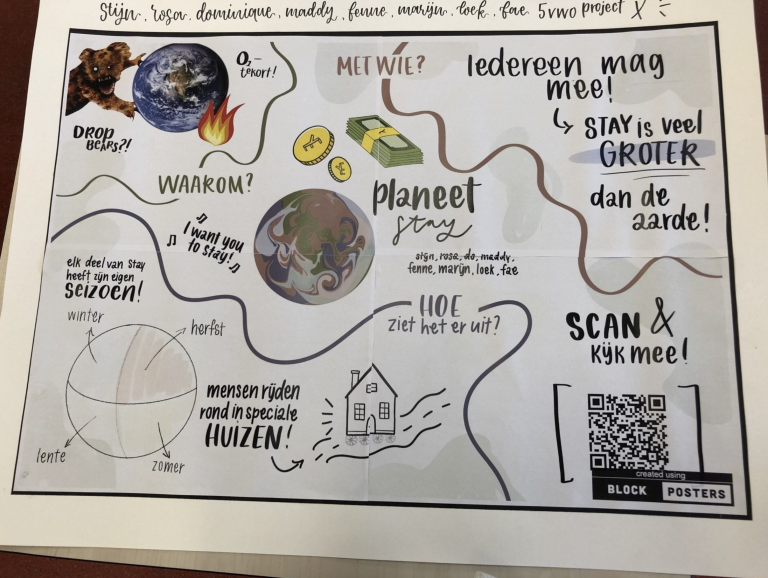 stijn, rosa, dominique, maddy, fenne, marijn, loek, fae 5vwo project X
O₂-
tekort!
DROP
BEARS?!
WAAROM?
MET WIE?
Iedereen mag
mee!
STAY is veel
GROTER
dan de
aarde!
planeet
stay
stijn, rosa, do, maddy,
fenne, marijn, loek, fae
I want you
to stay!
elk deel van Stay
heeft zijn eigen
SEIZOEN!
winter
herfst
lente
zomer
HOE
ziet het er uit?
mensen rijden
rond in speciale
HUIZEN!
SCAN &
kijk mee!
created using
BLOCK POSTERS